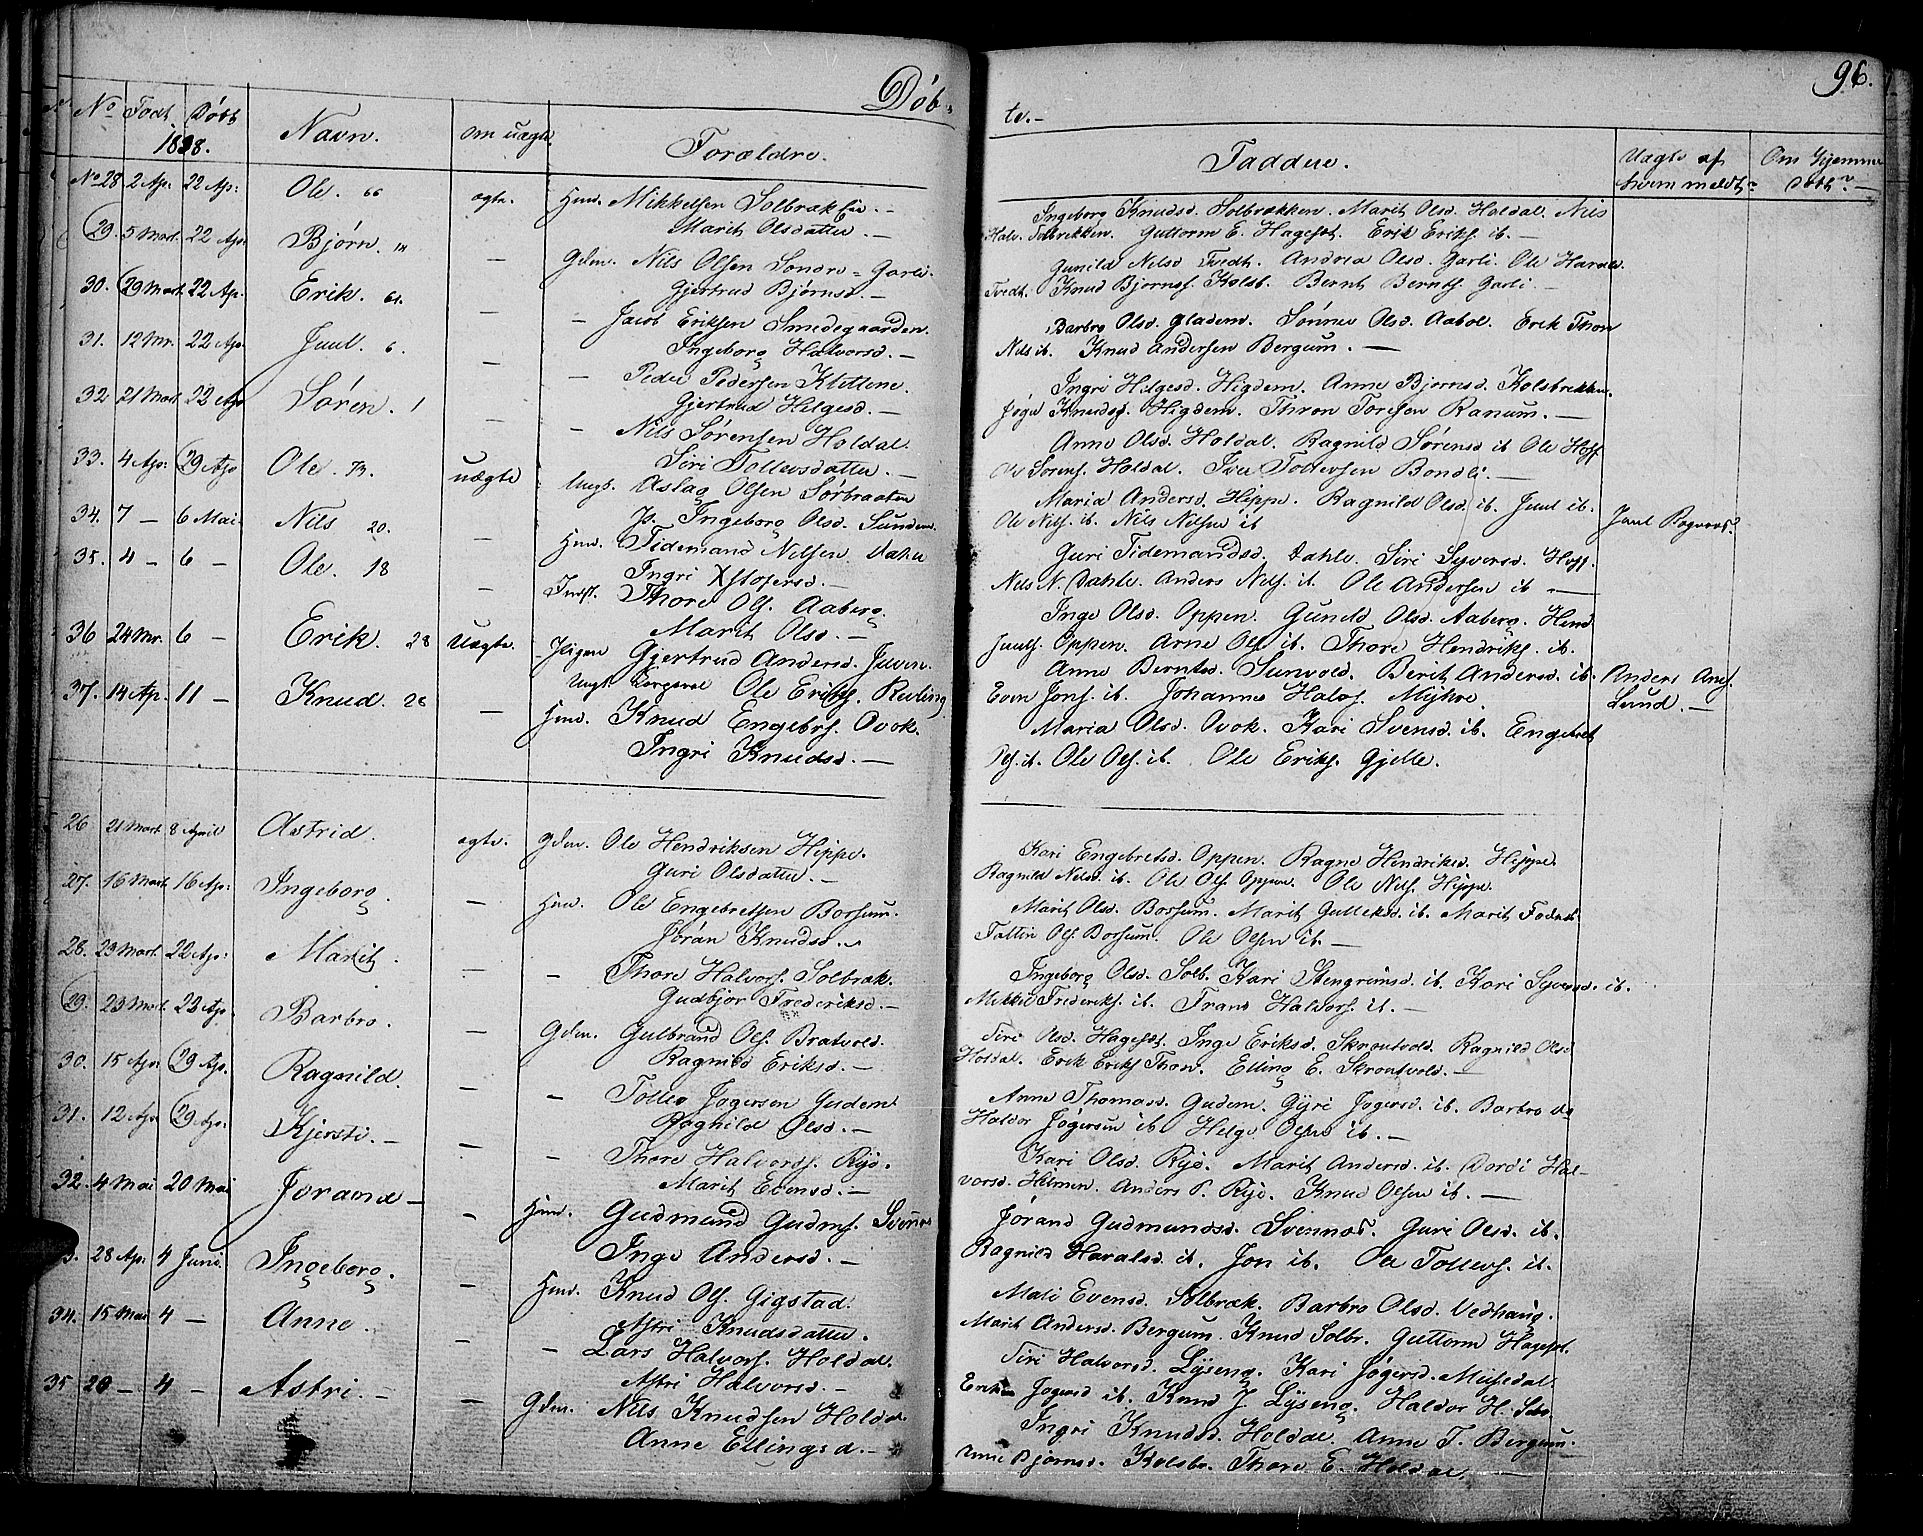 Døb-
te.-
96.
No Født Døbt Navn. Om uægte. Forældre. Faddere. Uægte af hvem meldt? Om Hjemme døbt?
1838.
No 28 2 Apr. 22 Ap: Ole. 66 ægte. Hmd. Mikkelsen Solbrækken.
Marit Olsdatter. —
Ingeborg Knudsd. Solbrækken. Marit Olsd. Holdal. Nils
Halv. Solbrekken. Guttorm E. Hagest. Erik Eriks. ib. —
29. 5 Mart. 22 Apr. Bjørn. — Gdm. Nils Olsen Søndre-Garli.
Gjertrud Bjørnsd. —
Gunild Nilsd Tvedt. Andrea Olsd. Garli. Ole Harals.
Tvedt. Knud Bjørns. Kolsb. Bernt Bernts. Garli —
30. 29 Mart. 22 Ap. Erik. 61. — — Jacob Eriksen Smedegaarden.
Ingeborg Halvorsd. —
Barbro Olsd. Gladem. Sønnev Olsd. Aabol. Erik Thon
Nils ib. Knud Andersen Bergum. —
31. 12 Mr. 22 Ap. Juul. 6. — — Peder Pedersen Klettene.
Gjertrud Helgesd. —
Ingri Helgesd. Higdem. Anne Bjørnsd. Kolsbrekken.
Jøger Knuds. Higdem. Thron Toresen Ranum. —
32 21 Mart. 22 Ap Søren. 1 — — Nils Sørensen Holdal.
Siri Tollevsdatter. —
Anne Olsd. Holdal. Ragnild Sørensd ib Ole Hoff
Ole Sørens. Holdal. Iver Tollevsen Bondli. —
33. 4 Ap: 29 Ap Ole. 73. uægte Ungk. Aslag Olsen Sørbraaten
P. Ingeborg Olsd. Sundem.
Maria Andersd. Hippe. Ragnild Olsd ib. Juul ib.
Ole Nils. ib. Nils Nilsen ib
34. 7 — 6 Mai. Nils 20. — Hmd. Tidemand Nilsen Dahle
Ingri Xstofersd. —
Guri Tidemandsd. Dahle. Siri Syversd. Hoff.
Nils N. Dahle. Anders Nils. ib. Ole Andersen ib —
35. 4 — 6 — Ole. 18 — Indst. Thore Ols. Aaberg.
Marit Olsd. —
Inge Olsd. Oppen. Gunild Olsd. Aaberg. Hend
Juuls. Oppen. Arne Ols ib. Thore Hendriks. ib.
36 24 Mr. 6 — Erik. 28 Uægte. Pigen Gjertrud Andersd. Juven
Ungk. Ole Eriks. Rudling
Anne Berntsd. Sunvold. Berit Andersd. ib. Anders And.
Even Jons. ib. Johannes Halvs. Myhre. Lund. —
37. 14 Ap. 11 — Knud. 28 — Hmd. Knud Engebrs. Qvok.
Ingri Knudsd. —
Maria Olsd. Qvok. Kari Svensd. ib. Engebret
Ols. ib. Ole Ols. ib. Ole Eriks. Gjelle.
26 21 Mart. 8 April Astrid. ægte. Gdm. Ole Hendriksen Hippe.
Guri Olsdatter. —
Kari Engebretsd. Oppen. Ragne Hendriksd. Hippe.
Ragnild Nilsd. ib. Ole Ols. Oppen. Ole Nils. Hippe.
27. 16 Mart. 16 Ap: Ingeborg. — Hmd. Ole Engebretsen Borsum.
Jøran Knudsd. —
Marit Olsd. Borsum. Marit Gulleksd. ib. Marit
Ols. Borsum. Ole Olsen ib. —
28. 23 Mart. 22 Ap: Marit. — — Thore Halvors. Solbræk.
Gudbjør Frederiksd. —
Ingeborg Olsd. Solb. Kari Stengrimsd. ib. Kari Syversd. ib.
Mikkel Frederiks. ib. Frans Halvors. ib. —
29. 23 Mart. 22 Ap. Barbro. — Gdm. Gulbrand Ols. Bratvold.
Ragnild Eriksd. —
Siri Olsd. Hagest. Inge Eriksd. Skroutvold. Ragnild Olsd
Holdal. Erik Eriks. Thon. Elling E. Skroutvold. —
30. 15 Apr 29 Ap. Ragnild. — — Tollev Jøgersen Gudem
Ragnild Olsd. —
Anne Thomasd. Gudem. Gyri Jøgersd. ib. Barbro do
Haldor Jøgersen ib. Helge Olsen ib. —
31. 12 Apr 29 Ap. Kjersti. — — — Thore Halvords. Rye.
Marit Evensd. —
Kari Olsd. Rye. Marit Andersd. ib. Dordi Hal-
vorsd. Helmen. Anders P. Rye. Knud Olsen ib. —
32. 4 Mai 20 Mai Jørand — — Hmd. Gudmund Gudms. Svennes
Inge Andersd. —
Jørand Gudmundsd. Svennes. Guri Olsd. ib.
Ragnild Haralsd ib. Jon ib. Ole Tollevs. ib.
28 Ap. 4 Juni. Ingeborg. — Hmd. Knud Ols. Gigstad.
Astri Knudsdatter.
Mali Evensd. Solbræk. Barbro Olsd. Vedhaug.
Marit Andersd. Bergum. Knud Solbr. Guttorm Hagest.
34. 15 Mai 4 — Anne. — — Lars Halvors. Holdal.
Astri Halvorsd. —
Siri Halvorsd. Lyseng. Kari Jøgersd.
Jøgersd ib. Knud J Lyseng. Haldor H.
35 20 — 4 — Astri. — — Gdm. Nils Knudsen Holdal
Anne Ellingsd. —
Ingri Knudsd. Holdal Anne T. Bergum.
Bjørnsd. Kolsbr. Thore E. Holdal. —
Juul Ragvos?